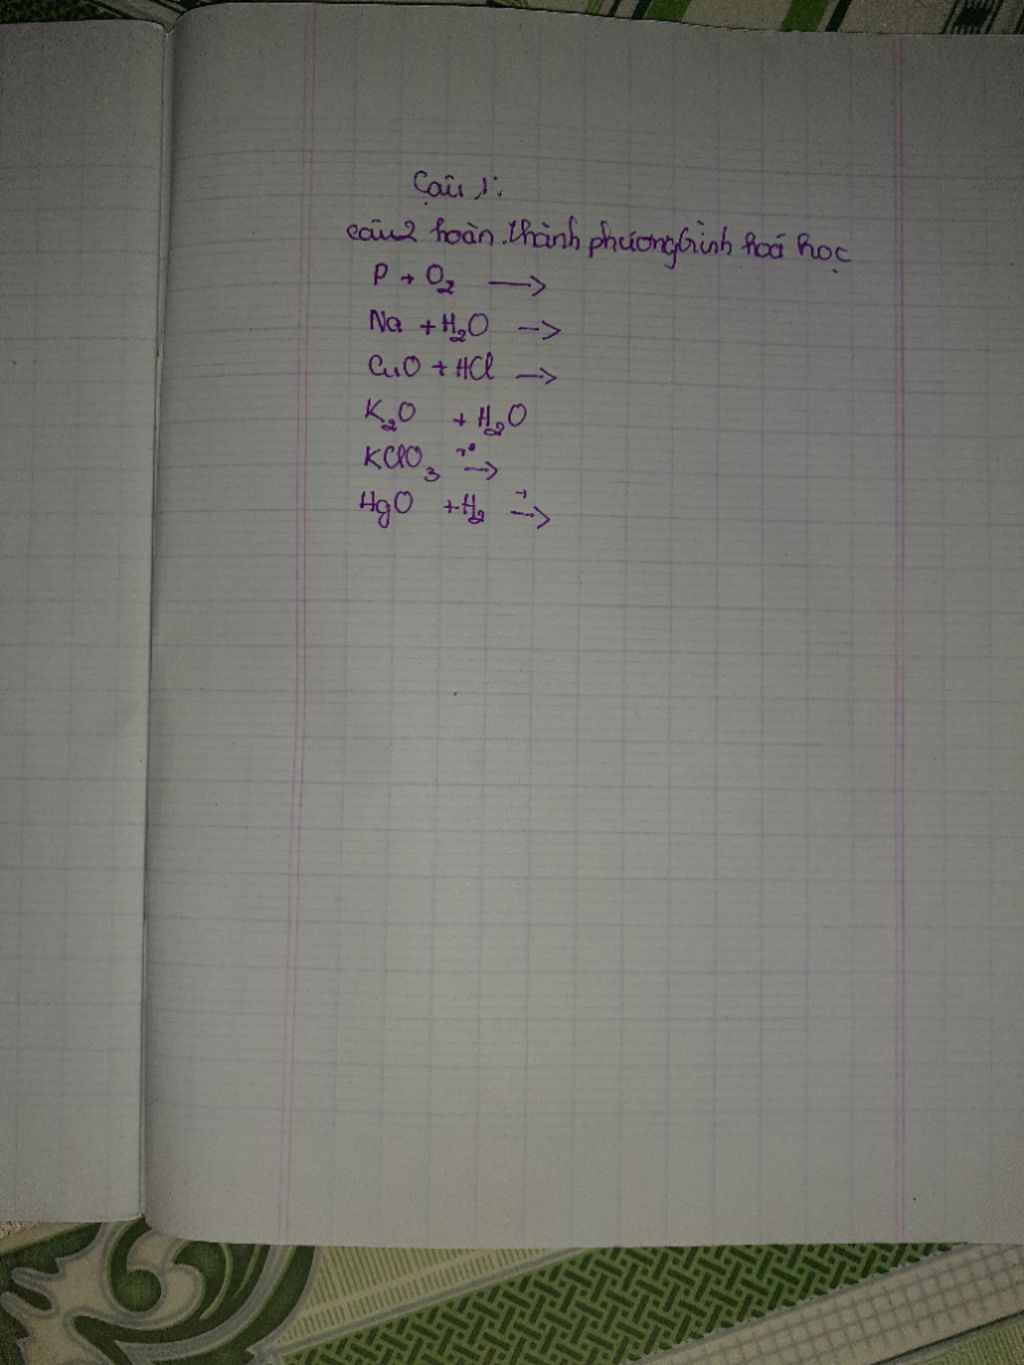 Câu 1:
câu2 hoàn thành phương trình hoá học
P + O₂ ⟶
Na + H₂O →
CuO + HCl →
K₂O + H₂O
KClO₃ →
HgO + H₂ →